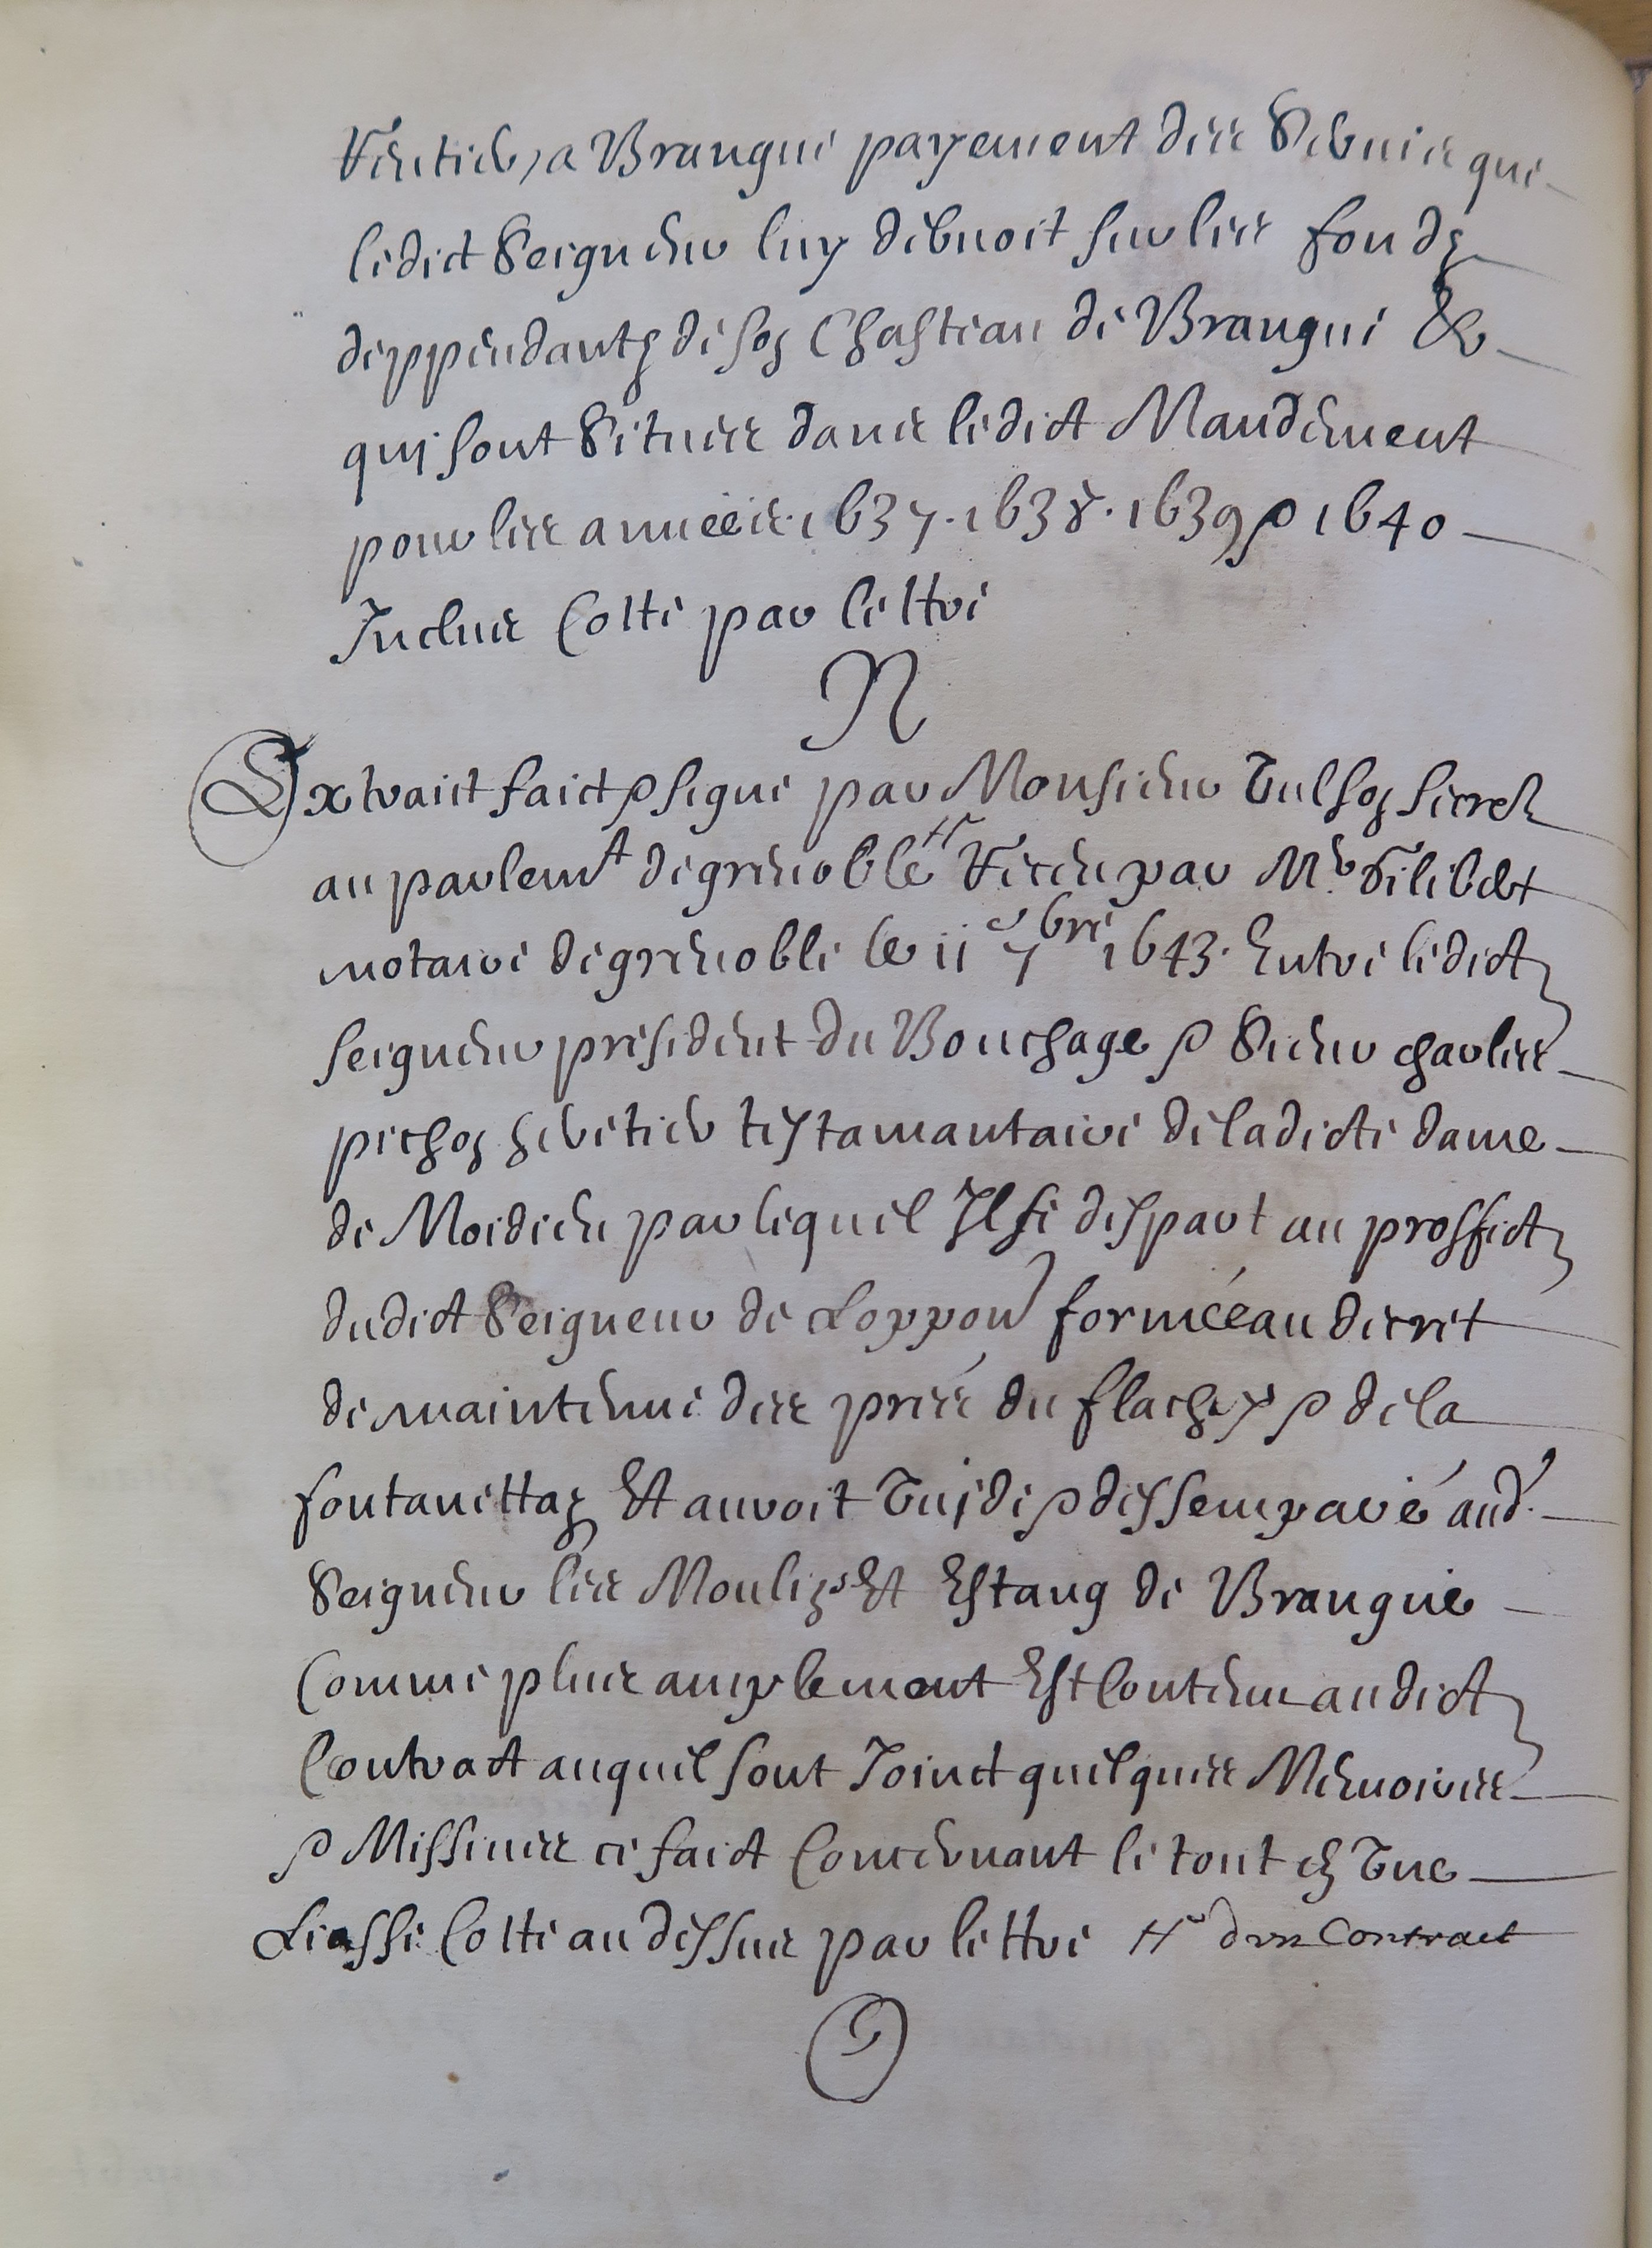 Rentier, a Brangue payement des Servis que
ledict Seigneur luy debvoit sur les fondz
deppendantz de son Chasteau de Brangue &
qui sont Situés dans ledict Mandement
pour les années 1637. 1638. 1639 & 1640
Inclus Cotté par lettre
N
Extraict faict & signé par Monsieur secret.
au parlemt de grenoble Receu par Mr. Filibert
notaire de grenoble le 11 7bre 1643. Entre ledict
seigneur president du Bouchage & Sieur charles
pichon heritier testamantaire de ladicte dame
de Moidieu par lequel Il se despart au proffict
dudict Seigneur de Loppon formée au decret
de maintenue des prés du flachey & de la
fontanettaz Et auroit vuidé & dessemparé aud.
Seigneur les Moulin Et Estang de Brangue
Comme plus amplement Est Contenu audict
Contract auquel sont Joinct quelques Memoires
& Missives ce faict Concernant le tout en vne
Liasse Cotté au dessus par lettre # dvn Contract
O